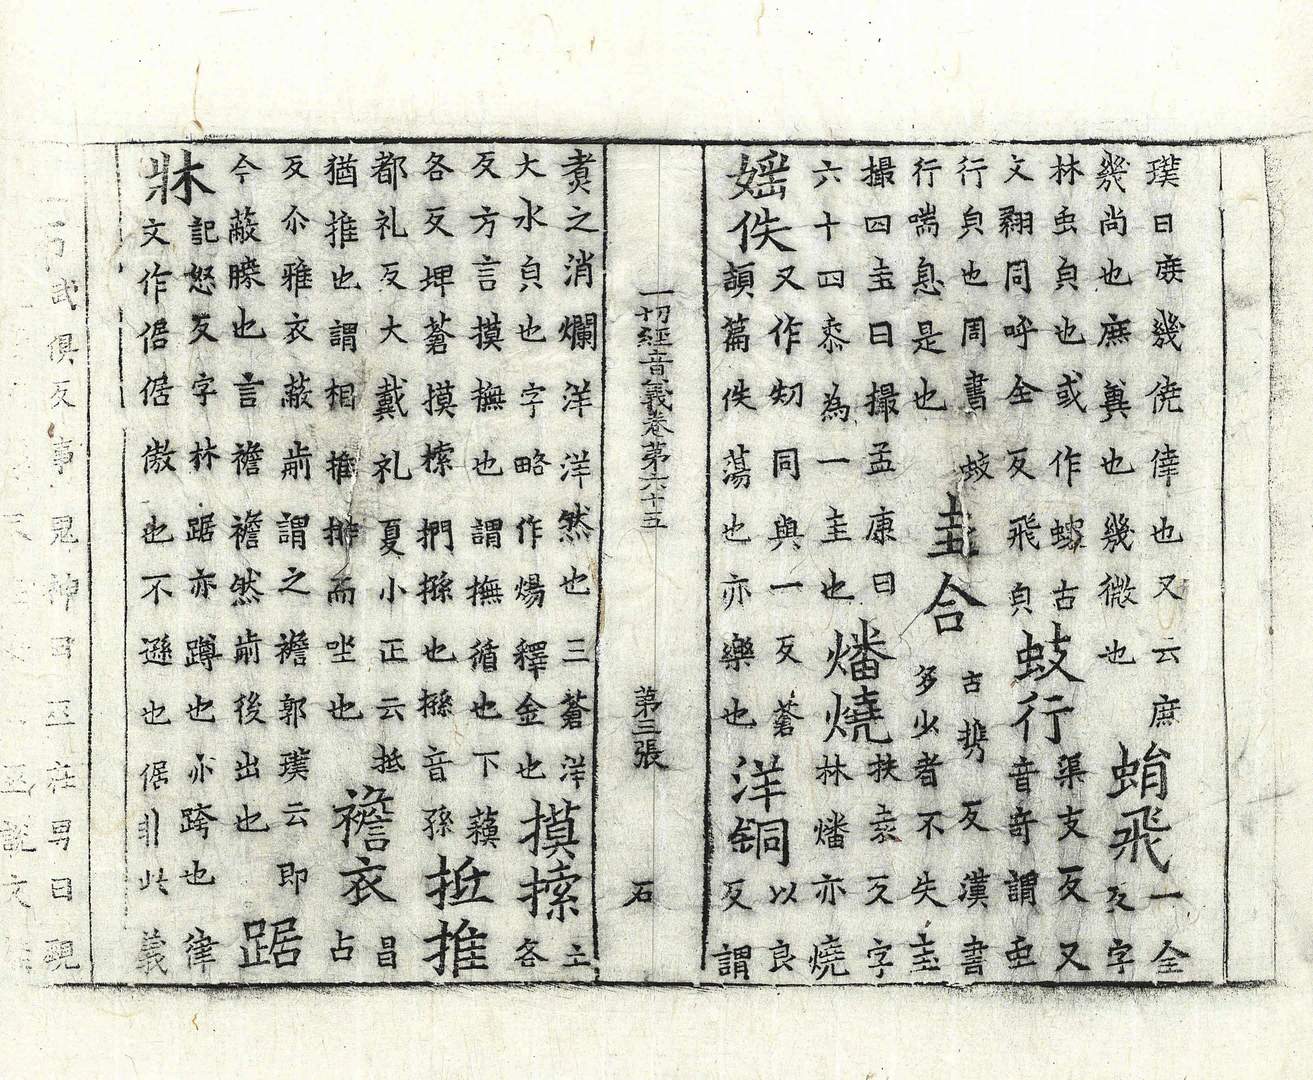 璞曰庻幾僥倖也又云庶
幾尚也庶兾也幾微也
蜎飛
一全
反字
林䖝皃也或作蠉古
文翾同呼全反飛皃
蚑行
渠支反又
音奇謂䖝
行皃也周書蚑
行喘息是也
圭合
古携反漢書
多少者不失圭
撮四圭曰撮孟康曰
六十四黍為一圭也
燔燒
扶袁反字
林燔亦燒
媱佚
又作劮同與一反蒼
頡篇佚蕩也亦樂也
洋銅
以良
反謂
一切經音義卷第六十五 第三張 石
煑之消爛洋洋然也三蒼洋
大水皃也字略作煬釋金也
摸㨔
亡
各
反方言摸撫也謂撫循也下蘓
各反埤蒼摸㨔捫搎也搎音孫
抵推
都礼反大戴礼夏小正云抵
猶推也謂相推排而坐也
襜衣
昌
占
反尒雅衣蔽前謂之襜郭璞云即
今蔽膝也言襜襜然前後出也
踞
牀
記恕反字林踞亦蹲也亦跨也律
文作倨倨傲也不遜也倨非此義
武俱反事鬼神曰巫在男曰覡
巫說文